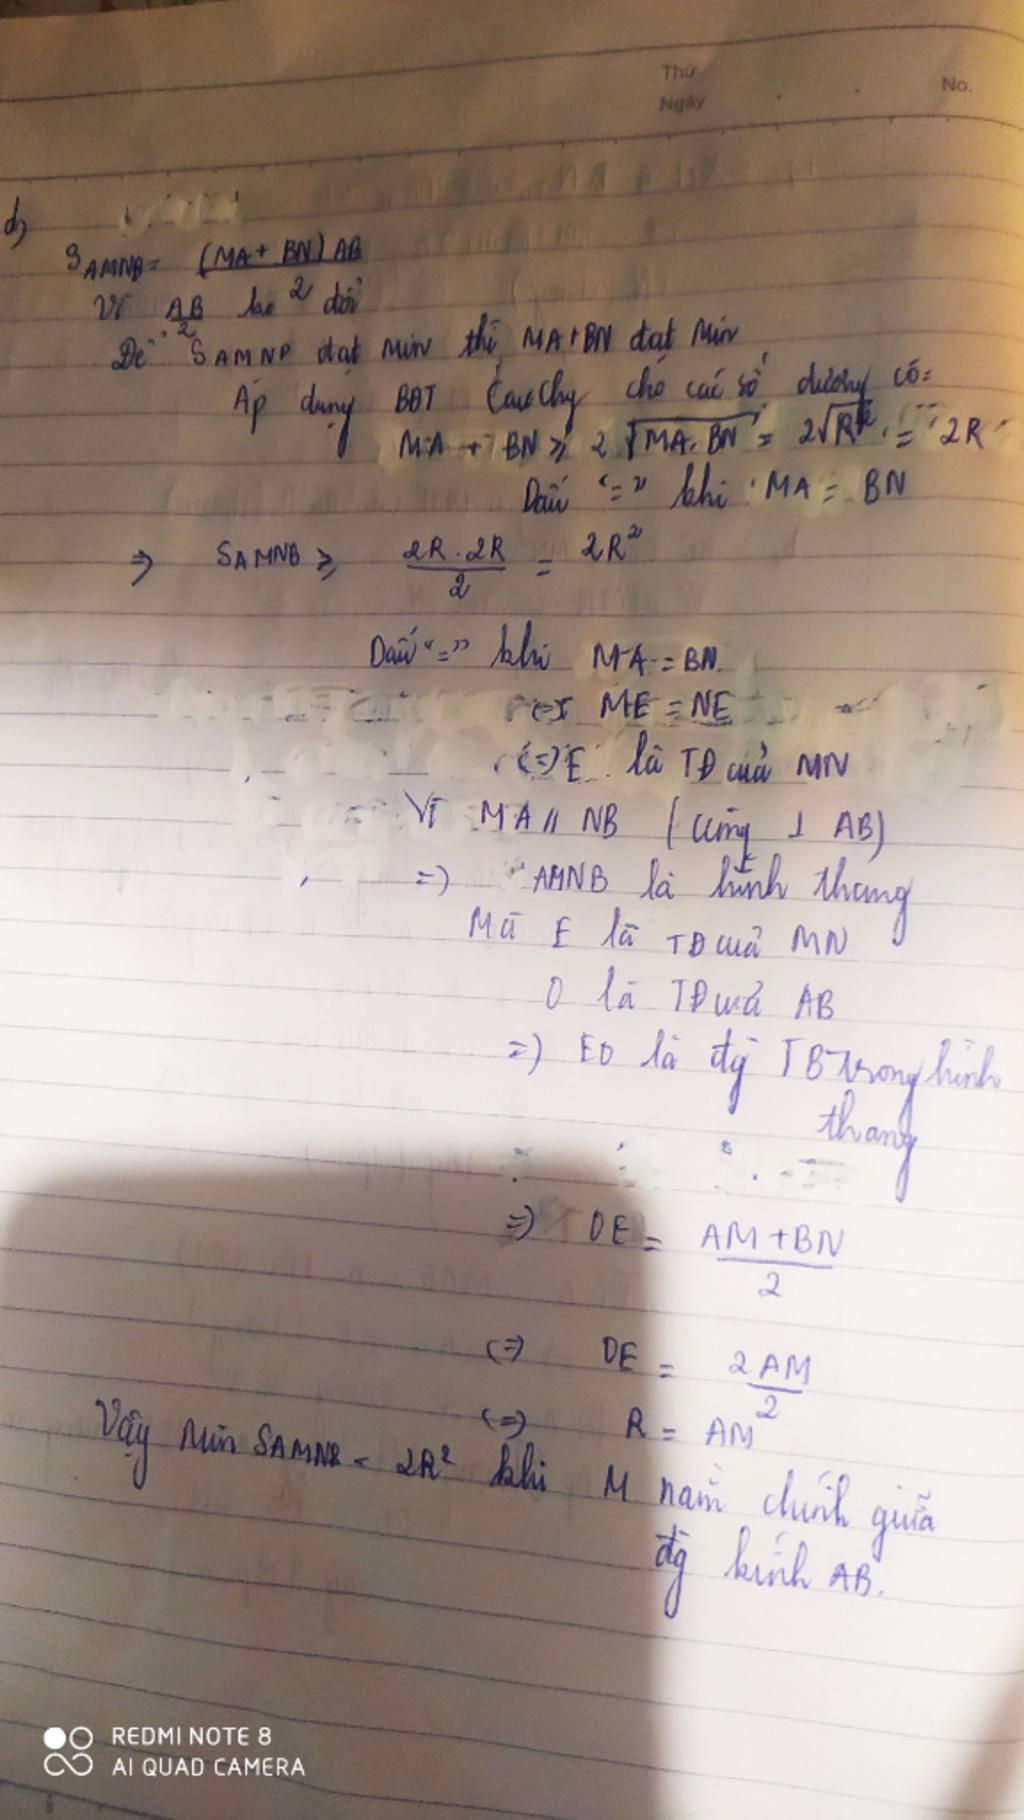 Thứ
Ngày
No.
d,
SAMNB = (MA + BN) AB
2
Vì AB ko đổi
2
Để SAMNP đạt min thì MA+BN đạt Min
Áp dụng BĐT Cauchy cho các số dương có:
MA + BN ≥ 2 √MA.BN = 2√R² = 2R
Dấu "=" khi MA = BN
⇒ SAMNB ≥ 2R.2R = 2R²
2
Dấu "=" khi MA = BN
(=) ME = NE
(=) E là TĐ của MN
Vì MA // NB (cùng ⊥ AB)
=) AMNB là hình thang
Mà E là TĐ của MN
O là TĐ của AB
=) EO là đg TB trong hình
thang
=) OE = AM+BN
2
(=) OE = 2AM
2
(=) R = AM
Vậy Min SAMNB = 2R² khi M nằm chính giữa
đg kính AB.
REDMI NOTE 8
AI QUAD CAMERA